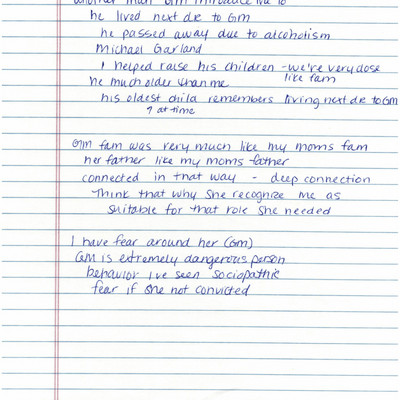 another man GM introduce me to
he lived next dr to GM
he passed away due to alcoholism
Michael Garland
I helped raise his children - we're very close
like fam
he much older than me
his oldest child remembers living next dr to GM
? at time
GM fam was very much like my moms fam
her father like my moms father
connected in that way - deep connection
Think that why she recognize me as
suitable for that role she needed
I have fear around her (GM)
GM is extremely dangerous person
behavior I've seen sociopathic
fear if she not convicted